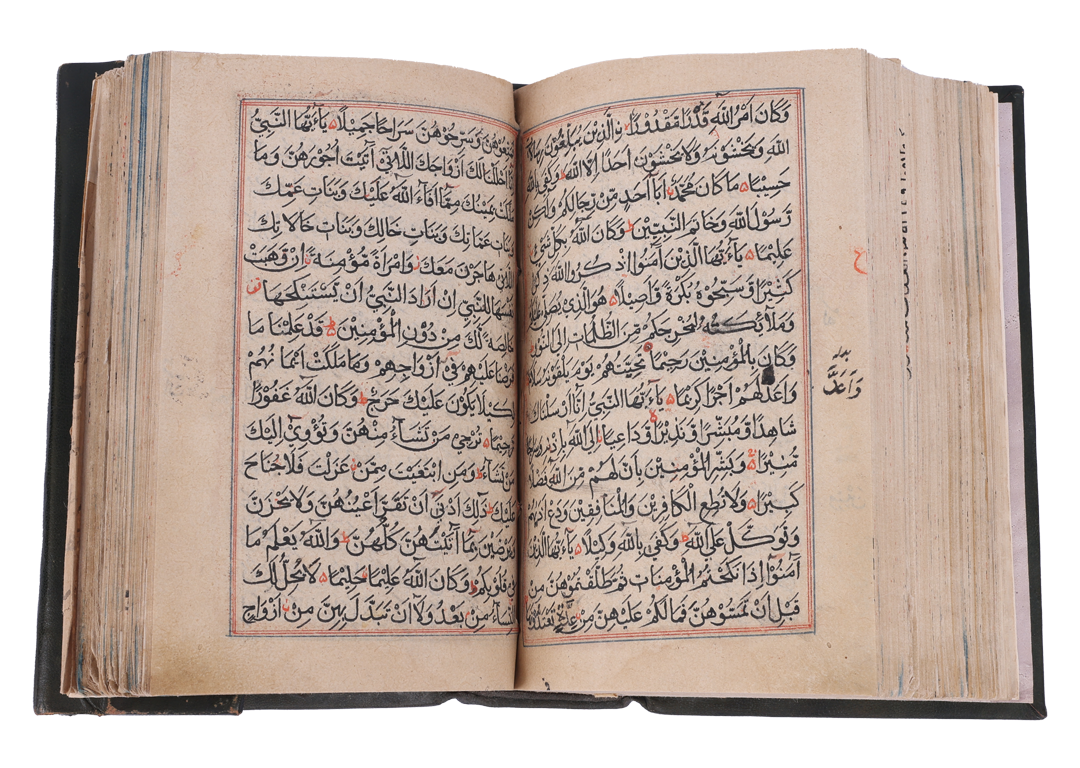 وَكَانَ اَمْرُ اللّٰهِ قَدَرًا مَقْدُورًا الَّذِينَ يُبَلِّغُونَ رِسَالَاتِ
اللّٰهِ وَيَخْشَوْنَهُ وَلَا يَخْشَوْنَ اَحَدًا اِلَّا اللّٰهَ وَكَفٰى بِاللّٰهِ
حَسِيبًا مَا كَانَ مُحَمَّدٌ اَبَا اَحَدٍ مِنْ رِجَالِكُمْ وَلٰكِنْ
رَسُولَ اللّٰهِ وَخَاتَمَ النَّبِيِّينَ وَكَانَ اللّٰهُ بِكُلِّ شَيْءٍ
عَلِيمًا يَآءَيُّهَا الَّذِينَ آمَنُوا اذْكُرُوا اللّٰهَ ذِكْرًا
كَثِيرًا وَسَبِّحُوهُ بُكْرَةً وَاَصِيلًا هُوَ الَّذِي يُصَلِّي عَلَيْكُمْ
وَمَلَآئِكَتُهُ لِيُخْرِجَكُمْ مِنَ الظُّلُمَاتِ اِلَى النُّورِ
وَكَانَ بِالْمُؤْمِنِينَ رَحِيمًا تَحِيَّتُهُمْ يَوْمَ يَلْقَوْنَهُ سَلَامٌ
وَاَعَدَّ لَهُمْ اَجْرًا كَرِيمًا يَآءَيُّهَا النَّبِيُّ اِنَّا اَرْسَلْنَاكَ
شَاهِدًا وَمُبَشِّرًا وَنَذِيرًا وَدَاعِيًا اِلَى اللّٰهِ بِاِذْنِهِ وَسِرَاجًا
مُنِيرًا وَبَشِّرِ الْمُؤْمِنِينَ بِاَنَّ لَهُمْ مِنَ اللّٰهِ فَضْلًا
كَبِيرًا وَلَا تُطِعِ الْكَافِرِينَ وَالْمُنَافِقِينَ وَدَعْ اَذٰيهُمْ
وَتَوَكَّلْ عَلَى اللّٰهِ وَكَفٰى بِاللّٰهِ وَكِيلًا يَآءَيُّهَا الَّذِينَ
آمَنُوا اِذَا نَكَحْتُمُ الْمُؤْمِنَاتِ ثُمَّ طَلَّقْتُمُوهُنَّ مِنْ
قَبْلِ اَنْ تَمَسُّوهُنَّ فَمَا لَكُمْ عَلَيْهِنَّ مِنْ عِدَّةٍ تَعْتَدُّونَهَا
وَاَعَدَّ
فَمَتِّعُوهُنَّ وَسَرِّحُوهُنَّ سَرَاحًا جَمِيلًا يَآءَيُّهَا النَّبِيُّ
اِنَّا اَحْلَلْنَا لَكَ اَزْوَاجَكَ اللَّاتِي آتَيْتَ اُجُورَهُنَّ وَمَا
مَلَكَتْ يَمِينُكَ مِمَّا اَفَآءَ اللّٰهُ عَلَيْكَ وَبَنَاتِ عَمِّكَ
وَبَنَاتِ عَمَّاتِكَ وَبَنَاتِ خَالِكَ وَبَنَاتِ خَالَاتِكَ
اللَّاتِي هَاجَرْنَ مَعَكَ وَامْرَاَةً مُؤْمِنَةً اِنْ وَهَبَتْ
نَفْسَهَا لِلنَّبِيِّ اِنْ اَرَادَ النَّبِيُّ اَنْ يَسْتَنْكِحَهَا
خَالِصَةً لَكَ مِنْ دُونِ الْمُؤْمِنِينَ قَدْ عَلِمْنَا مَا
فَرَضْنَا عَلَيْهِمْ فِي اَزْوَاجِهِمْ وَمَا مَلَكَتْ اَيْمَانُهُمْ
لِكَيْلَا يَكُونَ عَلَيْكَ حَرَجٌ وَكَانَ اللّٰهُ غَفُورًا
رَحِيمًا تُرْجِي مَنْ تَشَآءُ مِنْهُنَّ وَتُؤْوِي اِلَيْكَ
مَنْ تَشَآءُ وَمَنِ ابْتَغَيْتَ مِمَّنْ عَزَلْتَ فَلَا جُنَاحَ
عَلَيْكَ ذٰلِكَ اَدْنٰى اَنْ تَقَرَّ اَعْيُنُهُنَّ وَلَا يَحْزَنَّ
وَيَرْضَيْنَ بِمَا آتَيْتَهُنَّ كُلُّهُنَّ وَاللّٰهُ يَعْلَمُ مَا
فِي قُلُوبِكُمْ وَكَانَ اللّٰهُ عَلِيمًا حَلِيمًا لَا يَحِلُّ لَكَ
النِّسَآءُ مِنْ بَعْدُ وَلَآ اَنْ تَبَدَّلَ بِهِنَّ مِنْ اَزْوَاجٍ